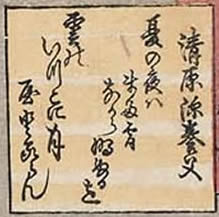 清原深養父
夏の夜ハ
また宵
なから明ぬるを
雲の
いつこに月
やとるらん